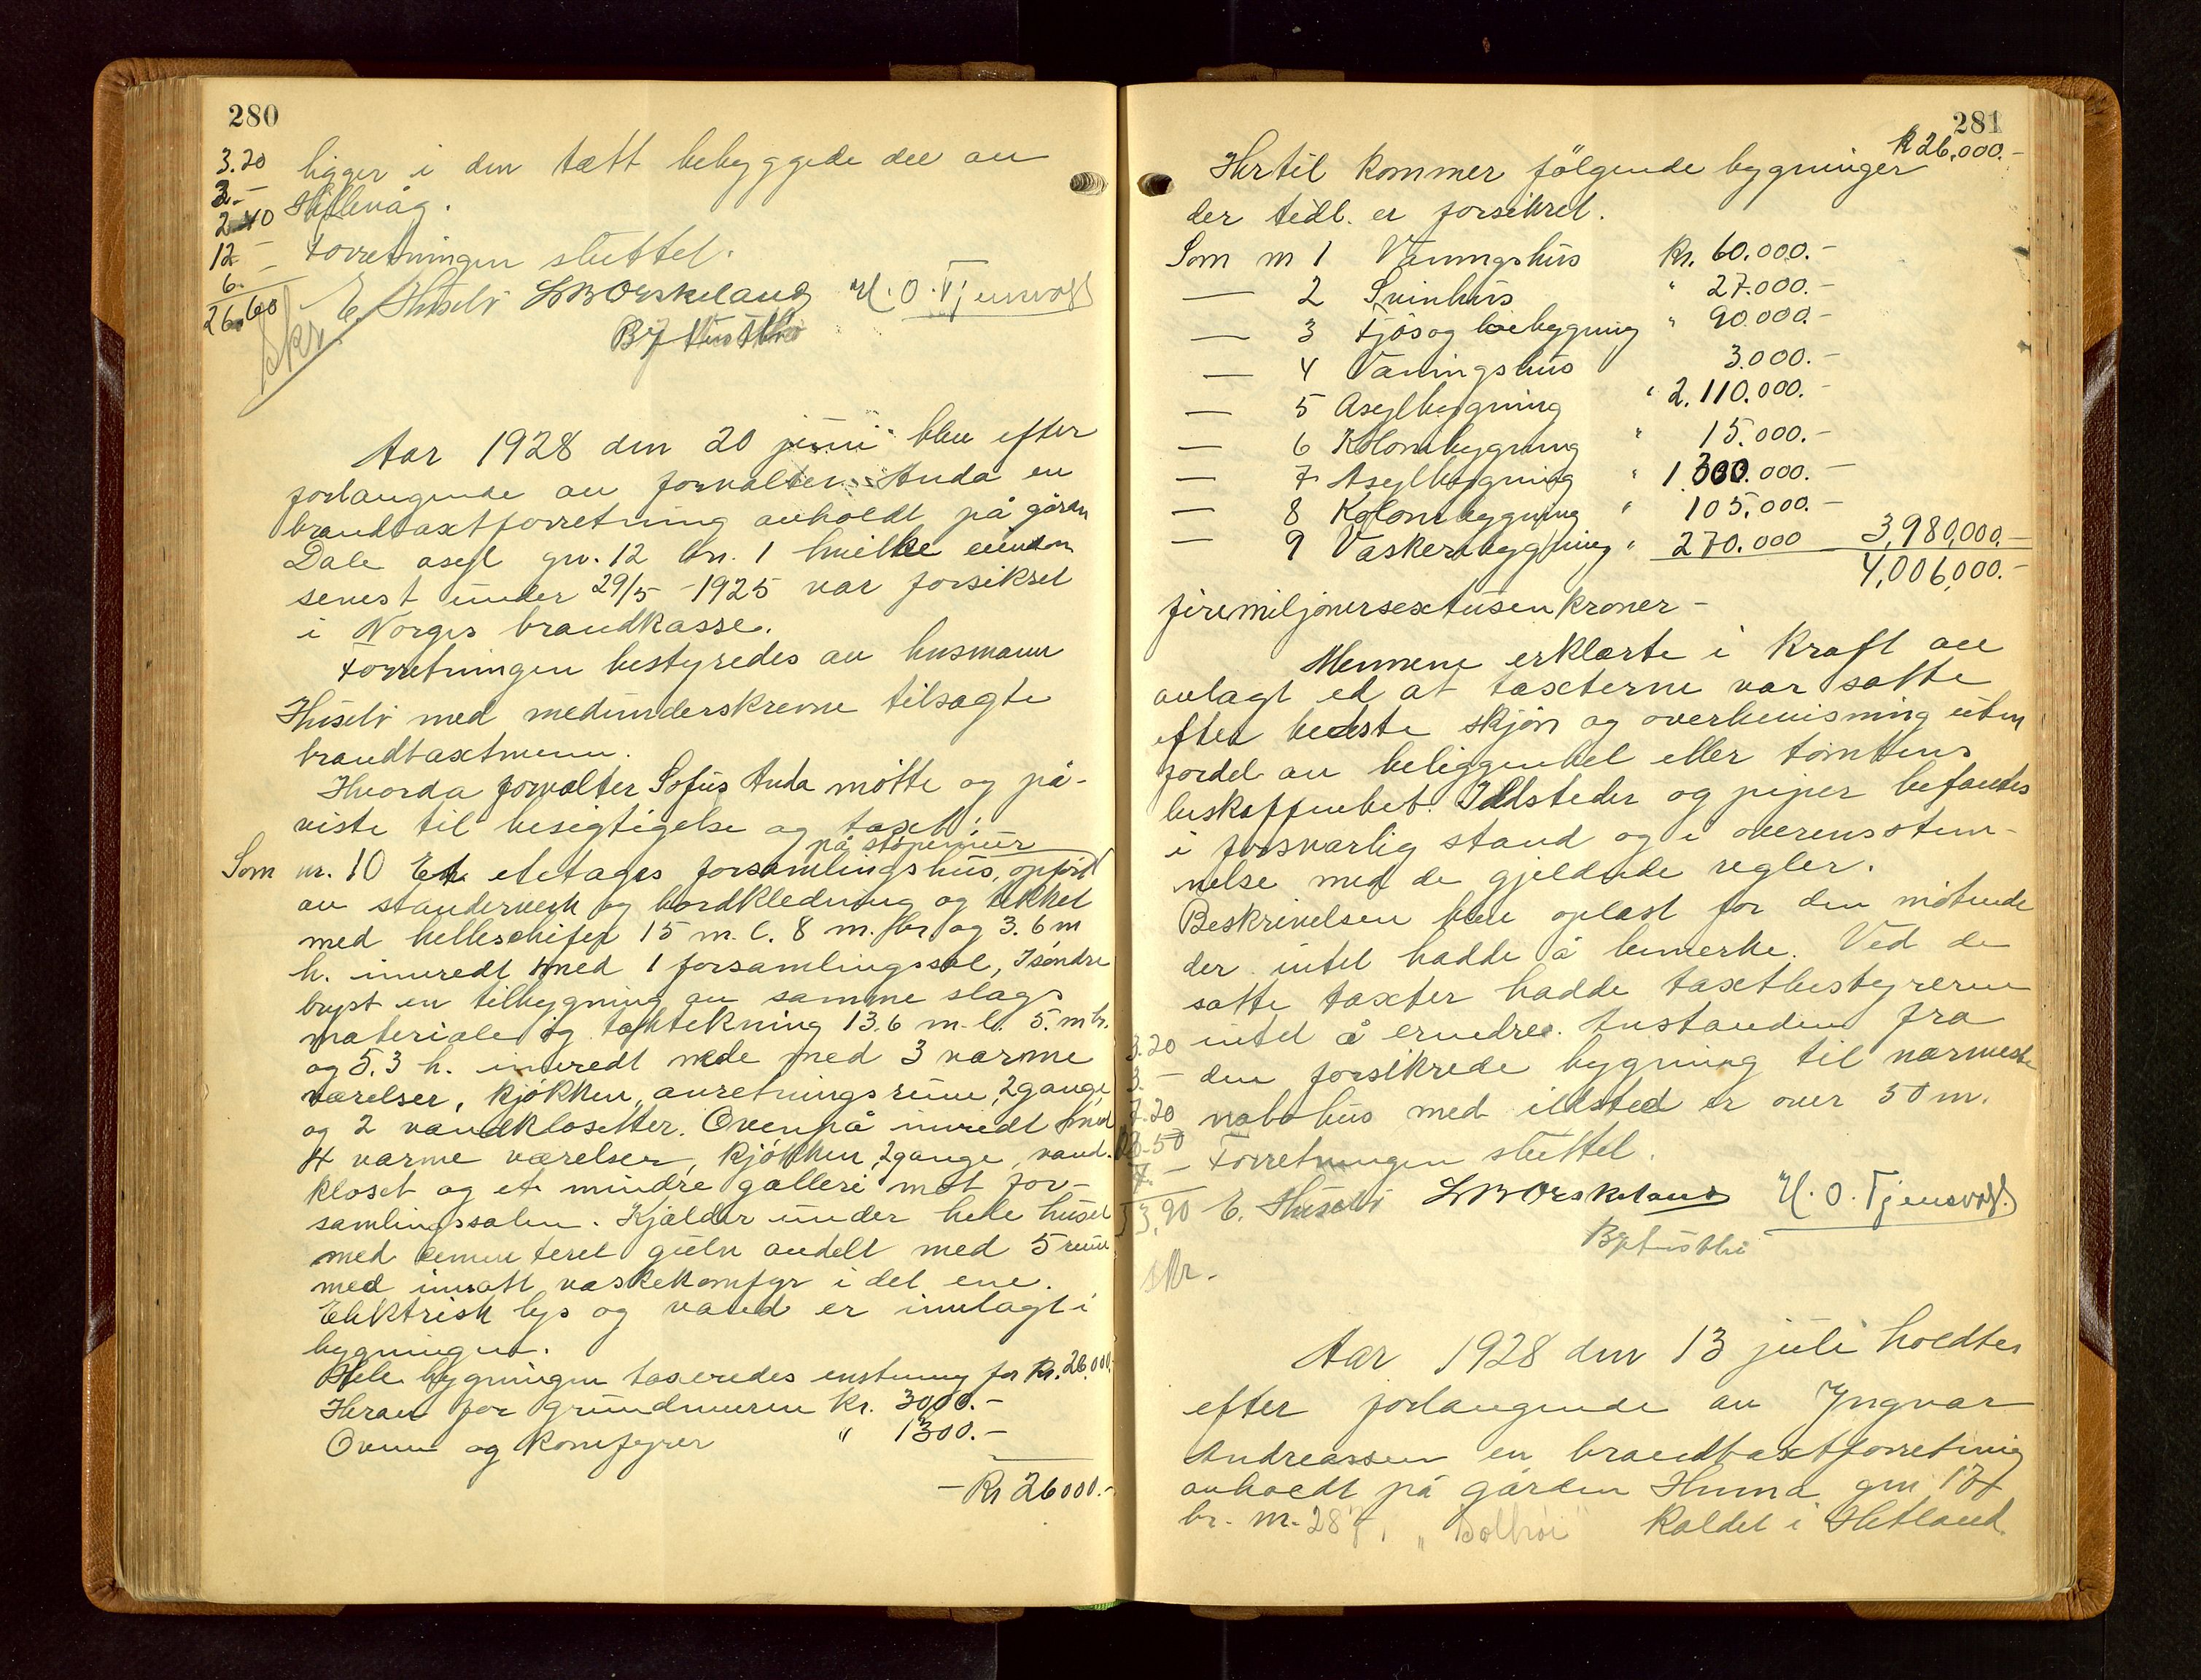 280
3.20
3.-
2.40
12 -
6. -
26.60
skr.
ligger i den tætt bebyggede del av
Hillevåg.
Forretningen sluttet.
E. Huselv L B Orskeland H. O. Tjensvoll
Aar 1928 den 20 juni blev efter
forlangende av forvalter Anda en
brandtaxtforretning avholdt på gården
Dale asyl gn. 12 bn. 1 hvilke eiendom
senest under 29/5 - 1925 var forsikret
i Norges brandkasse.
Forretningen bestyredes av husmann
Huselv med medunderskrevne tilsagte
brandtaxtmenn.
Hvorda forvalter Sofus Anda møtte og på-
viste til besigtigelse og taxt:
på støpemur
Som nr. 10 Et etetages forsamlingshus, opført
av standerverk og bordkledning og tekket
med helleskifer 15 m. l. 8 m. br. og 3.6 m
h. innredt med 1 forsamlingssal, I søndre
bryst en tilbygning av samme slags
materiale og taktekning 13.6 m. l. 5. m br.
og 5.3 h. innredt nede med 3 varme
værelser, kjøkken, anretningsrum, 2 gange
og 2 vandklosetter. Ovenpå innredt med
4 varme værelser, kjøkken, 2 gange, vand-
kloset og et mindre galleri mot for-
samlingssalen. Kjælder under hele huset
med cementeret gulv avdelt med 5 rum
med innsatt vaskekomfyr i det ene.
Elektrisk lys og vand er innlagt i
bygningen.
Hele bygningen taxeredes enstemmig for Kr. 26.000.-
Herav for grundmuren Kr. 3000.-
Ovner og komfyrer " 1300.-
- Kr 26000.-
281
K 26,000.-
Hertil kommer følgende bygninger
der tidl. er forsikret.
Som nr 1 Vaningshus Kr. 60.000.-
— 2 Svinhus " 27.000.-
— 3 Fjøs og løebygning " 90.000.-
— 4 Vaningshus 3.000.-
— 5 Asylbygning " 2.110.000.-
— 6 Kolonibygning " 15.000.-
— 7 Asylbygning " 1.300.000.-
— 8 Kolonibygning " 105,000.-
— 9 Vaskeribygning " 270.000 3,980,000.-
4,006,000.-
firemiljonersextusenkroner -
Mennene erklærte i kraft av
avlagt ed at taxterne var satte
efter bedste skjøn og overbevisning uten
fordel av beliggenhet eller tomtens
beskaffenhet. Ildsteder og piper befantes
i forsvarlig stand og i overensstem-
melse med de gjeldende regler.
Beskrivelsen blev oplæst for den møtende
der intet hadde å bemerke. Ved de
satte taxter hadde taxtbestyreren
intet å erindre. Avstanden fra
den forsikrede bygning til nærmeste
nabohus med ildsted er over 50 m.
Forretningen sluttet.
3.20
3. -
7.20
53,90
skr.
E. Huselv L B Orskeland H. O. Tjensvoll.
Aar 1928 den 13 juli holdtes
efter forlangende av Yngvar
Andreassen en brandtaxtforretning
avholdt på gården Hinna gn 17
br. nr. 287, "Solhøi" kaldet i Hetland